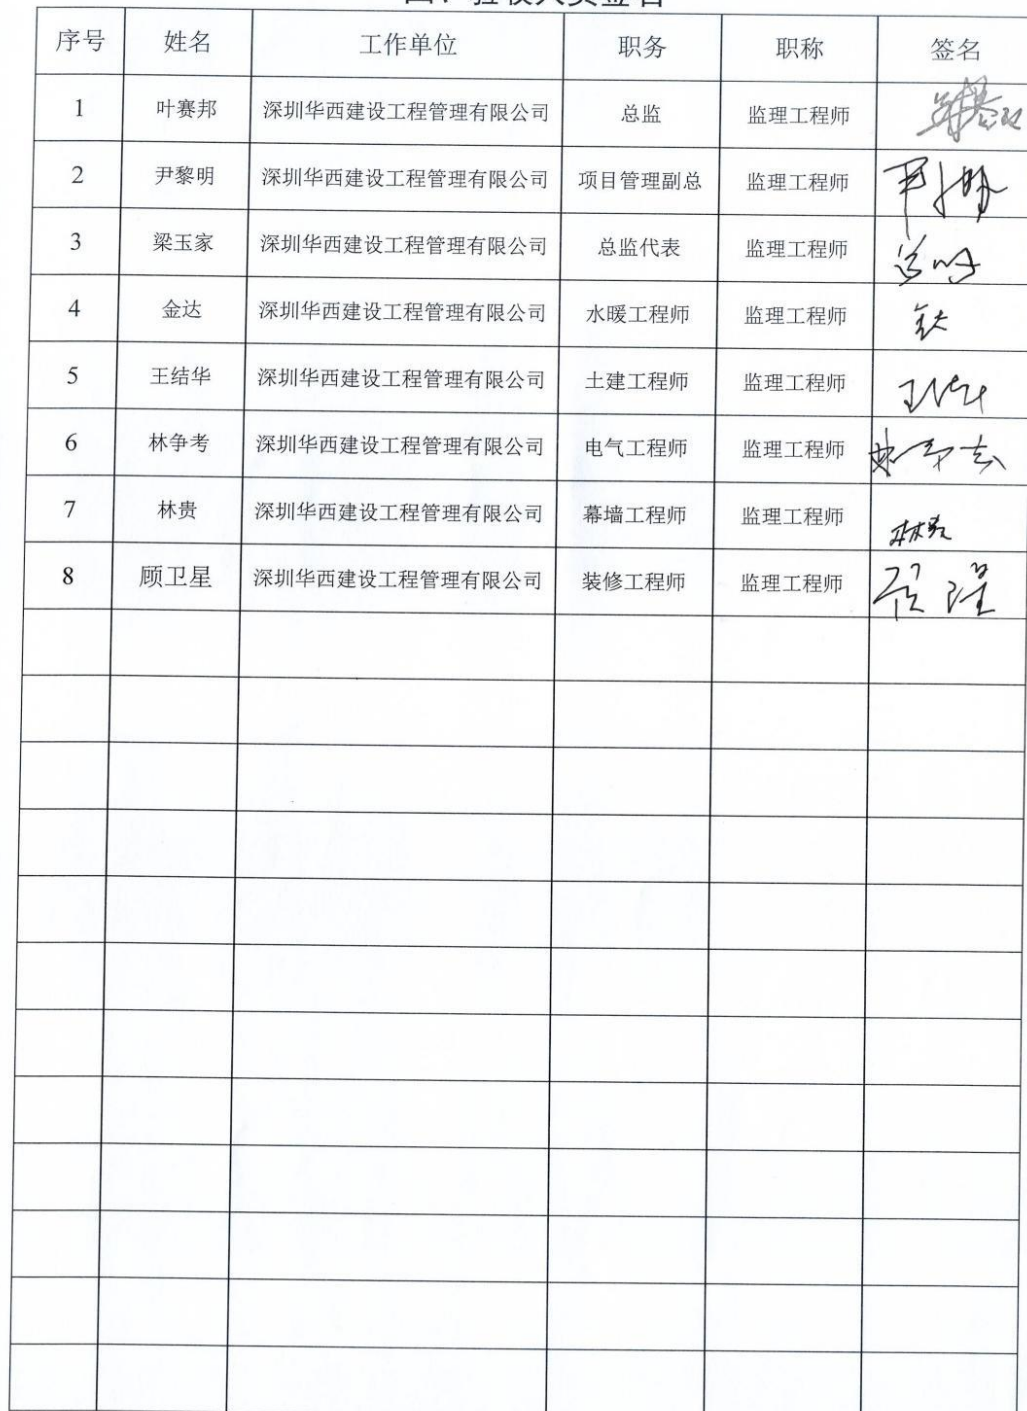 四、验收人员签名
序号 姓名 工作单位 职务 职称 签名
1 叶赛邦 深圳华西建设工程管理有限公司 总监 监理工程师
2 尹黎明 深圳华西建设工程管理有限公司 项目管理副总 监理工程师
3 梁玉家 深圳华西建设工程管理有限公司 总监代表 监理工程师
4 金达 深圳华西建设工程管理有限公司 水暖工程师 监理工程师 金达
5 王结华 深圳华西建设工程管理有限公司 土建工程师 监理工程师
6 林争考 深圳华西建设工程管理有限公司 电气工程师 监理工程师 林争考
7 林贵 深圳华西建设工程管理有限公司 幕墙工程师 监理工程师 林贵
8 顾卫星 深圳华西建设工程管理有限公司 装修工程师 监理工程师